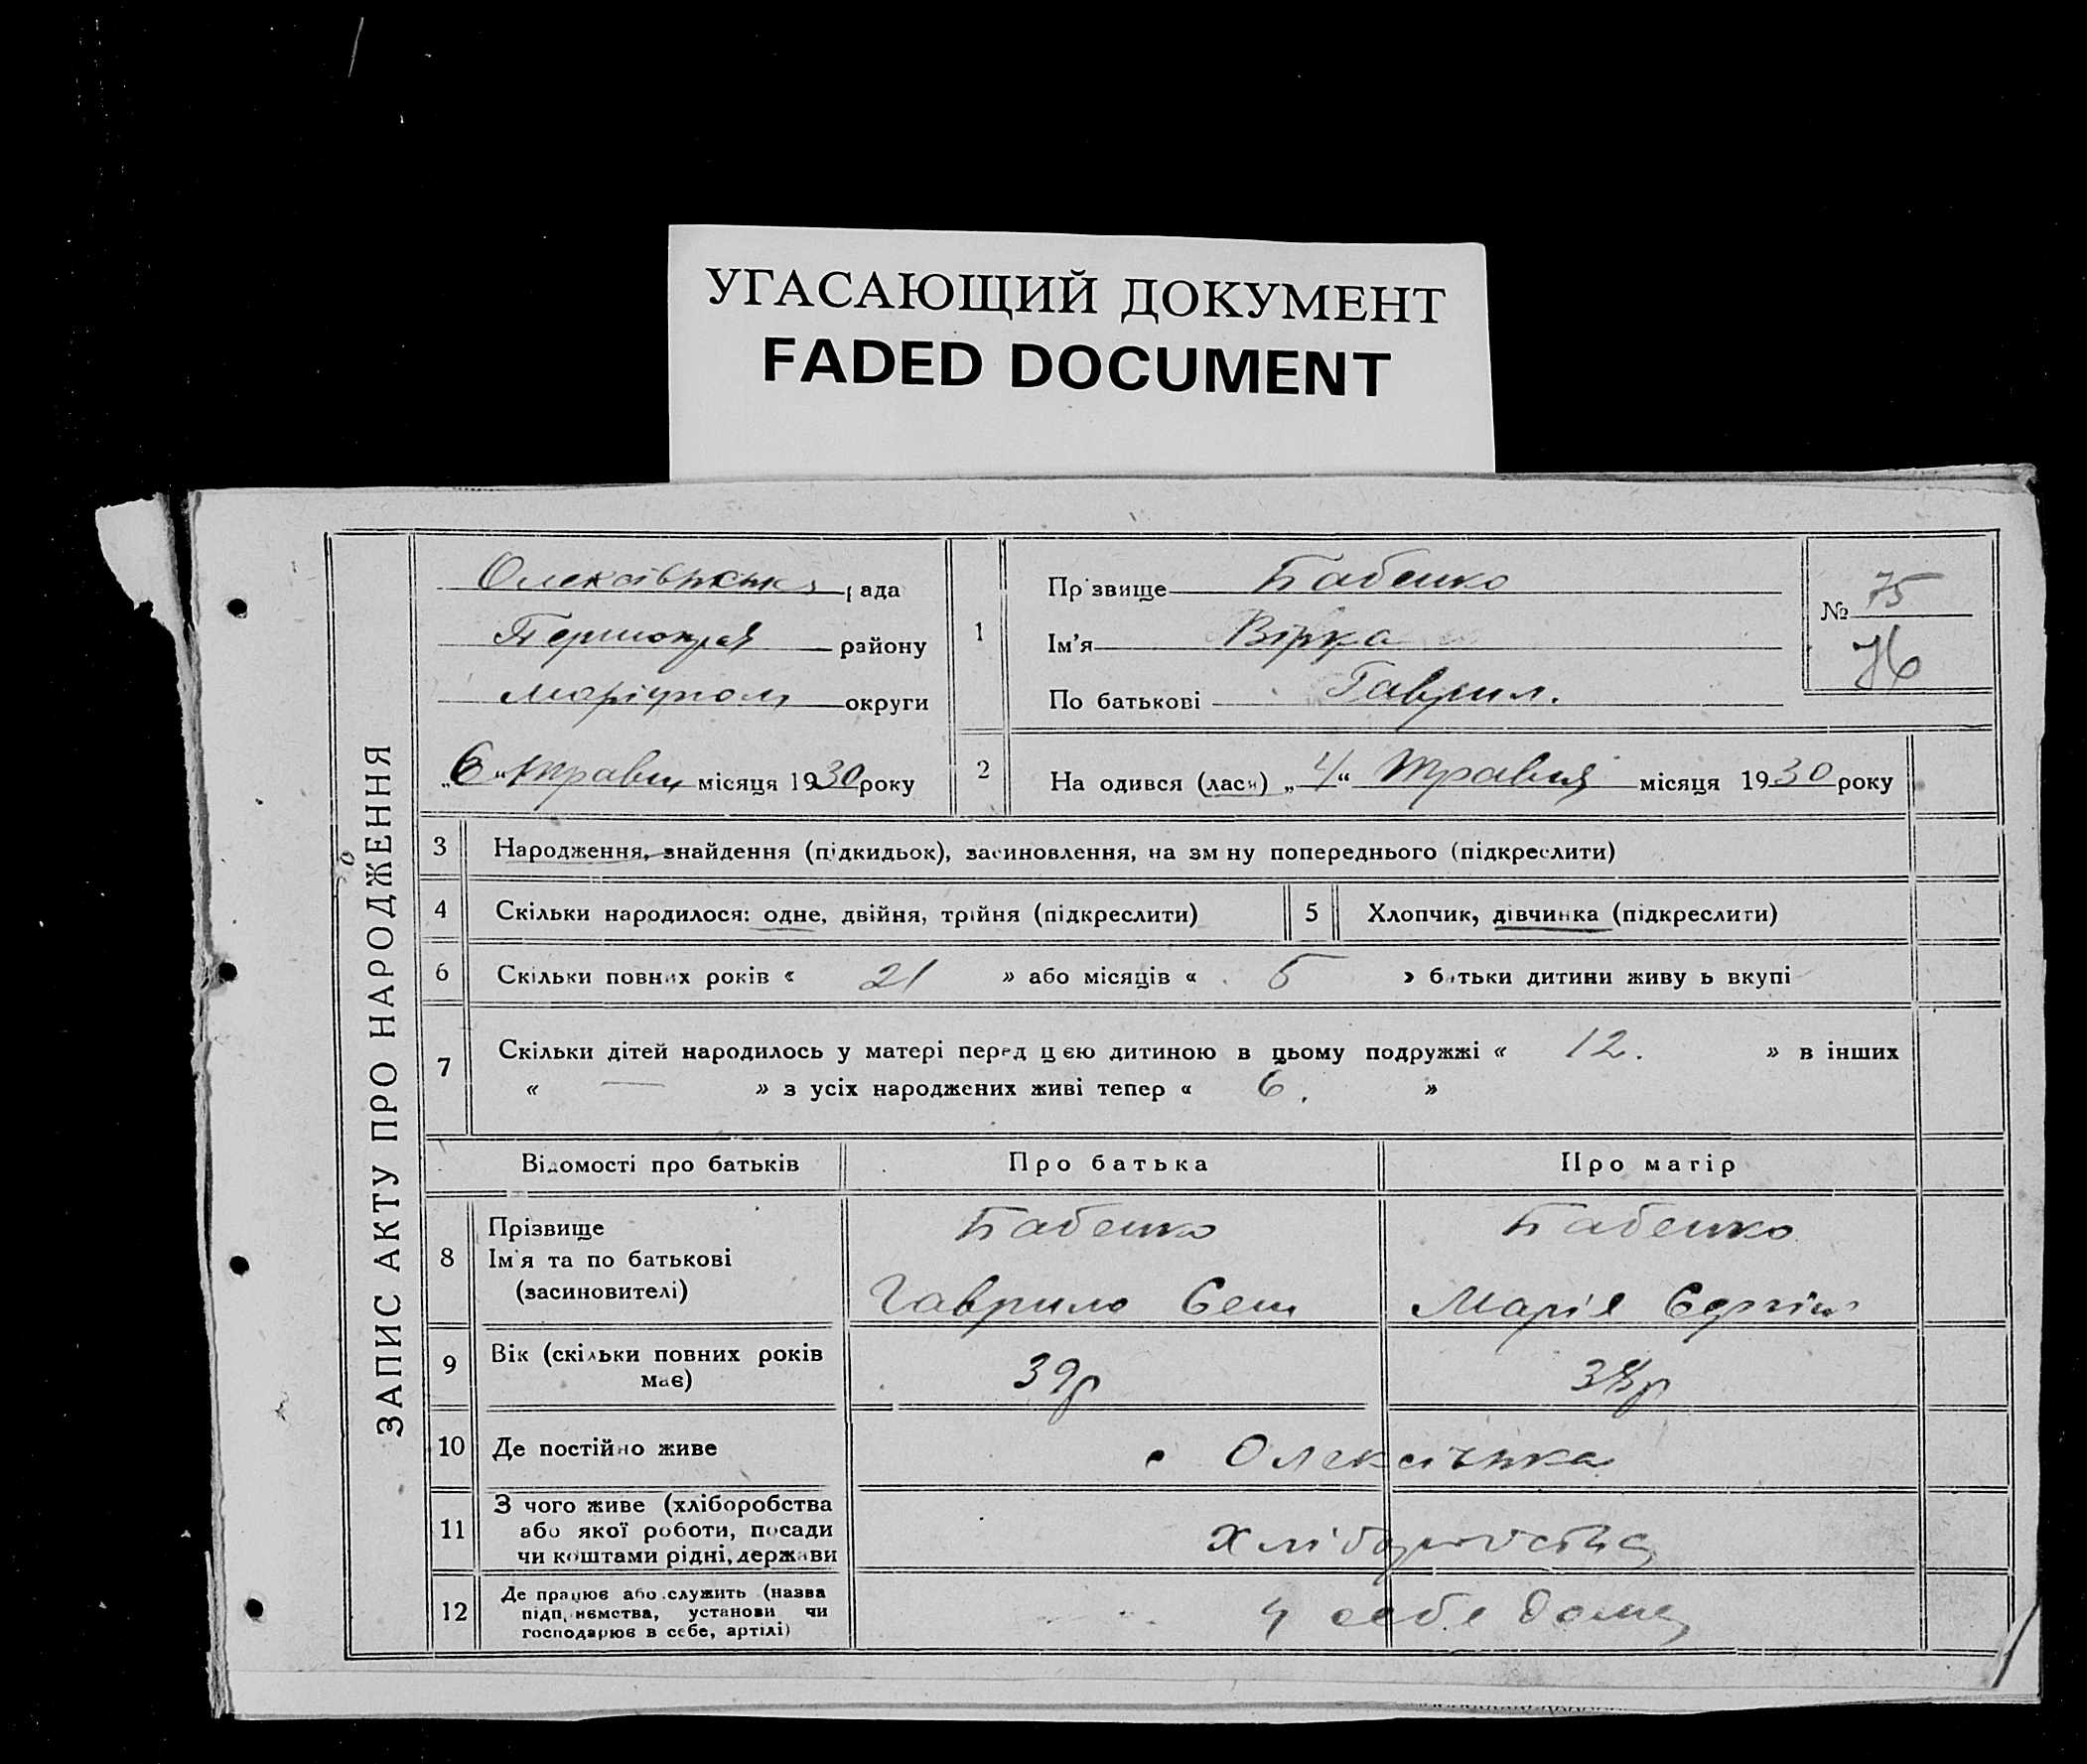 УГАСАЮЩИЙ ДОКУМЕНТ
FADED DOCUMENT
ЗАПИС АКТУ ПРО НАРОДЖЕННЯ
рада
району
округи
„6“ травня місяця 1930 року
1
Прізвище Бабенко
Ім'я Вірка
По батькові Гаврил.
№ 75
76
2
На одився (лася) „4“ Травня місяця 1930 року
3
Народження, знайдення (підкидьок), засиновлення, на зм ну попереднього (підкреслити)
4
Скільки народилося: одне, двійня, трійня (підкреслити)
5
Хлопчик, дівчинка (підкреслити)
6
Скільки повних років « 21 » або місяців « 5 » батьки дитини живу ь вкупі
7
Скільки дітей народилось у матері перед цею дитиною в цьому подружжі « 12. » в інших
« — » з усіх народжених живі тепер « 6. »
Відомості про батьків
Про батька
Про матір
8
Прізвище
Ім'я та по батькові
(засиновителі)
Бабенко
Гаврило Сем
Бабенко
Марія
9
Вік (скільки повних років
має)
39р
38р
10
Де постійно живе
11
З чого живе (хліборобства
або якої роботи, посади
чи коштами рідні, держави
Хліборобства
12
Де працює або служить (назва
підприємства, установи чи
господарює в себе, артілі)
у себе дома